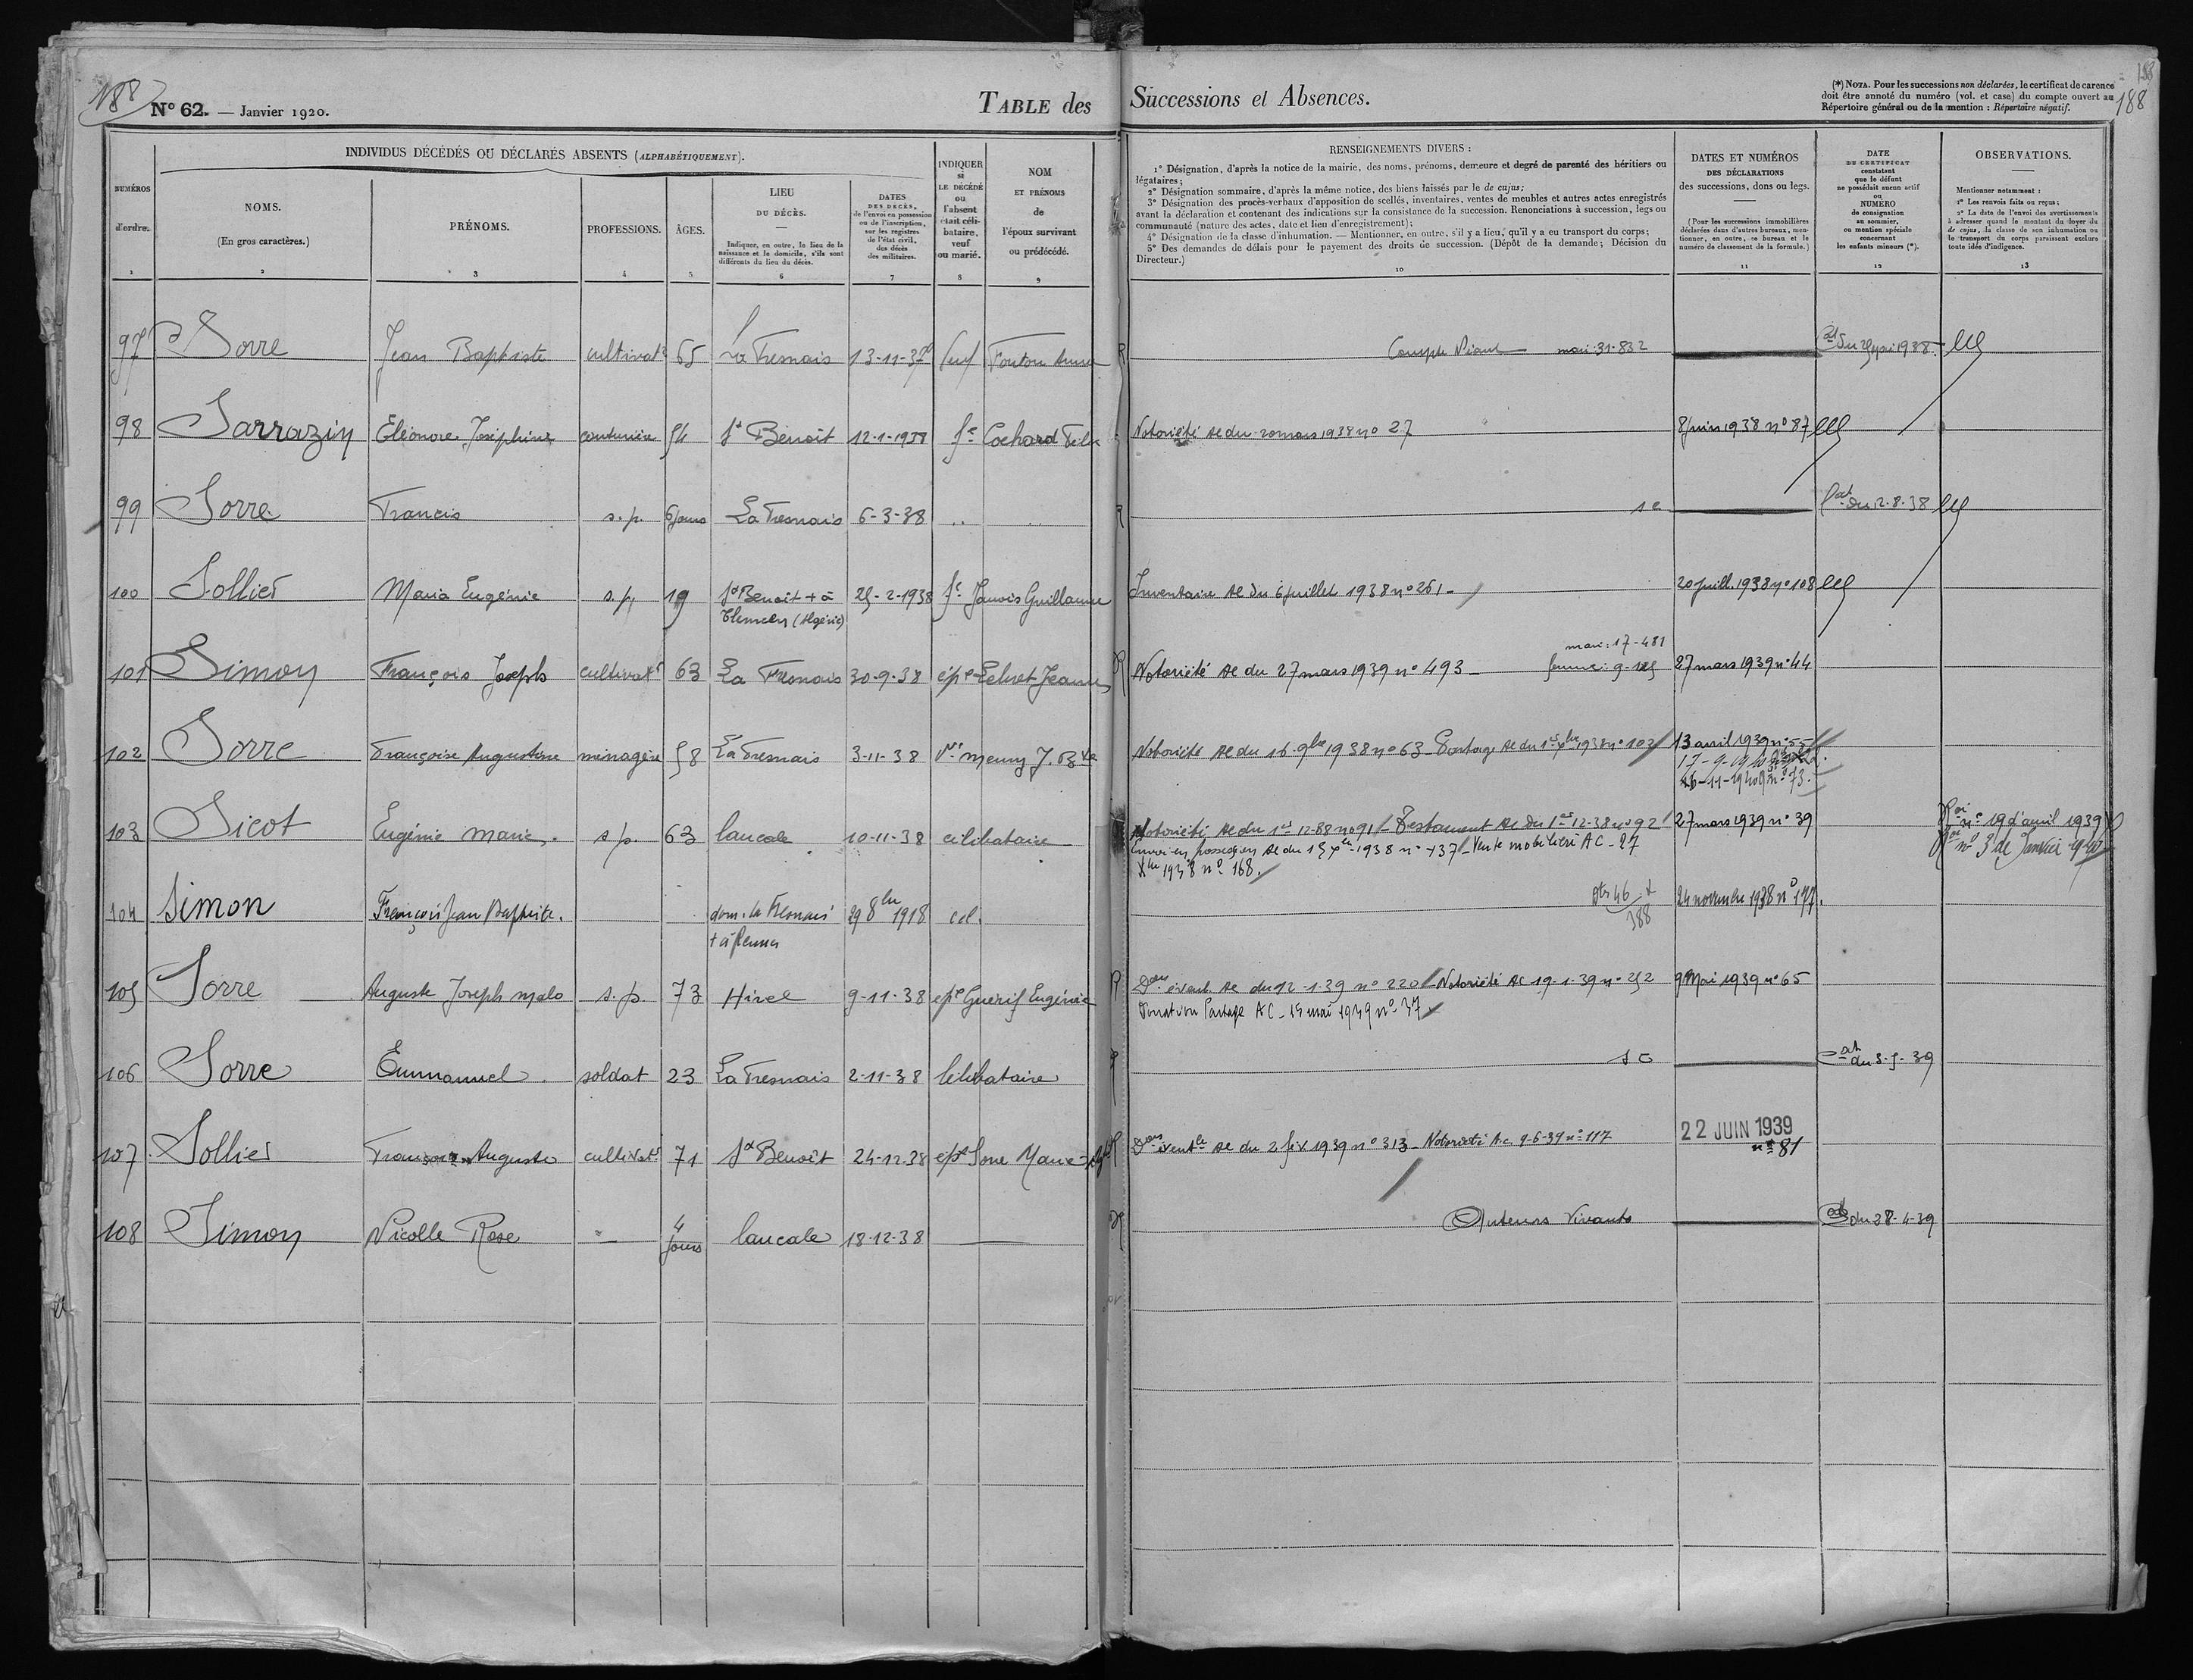 188
N° 62. — Janvier 1920.
TABLE des Successions et Absences.
(*) NOTA. Pour les successions non déclarées, le certificat de carence
doit être annoté du numéro (vol. et case) du compte ouvert au
Répertoire général ou de la mention : Répertoire négatif.
188
188
NUMÉROS
d'ordre.
1
INDIVIDUS DÉCÉDÉS OU DÉCLARÉS ABSENTS (ALPHABÉTIQUEMENT).
NOMS.
(En gros caractères.)
2
PRÉNOMS.
3
PROFESSIONS.
4
ÂGES.
5
LIEU
DU DÉCÈS.
Indiquer, en outre, le lieu de la
naissance et le domicile, s'ils sont
différents du lieu du décès.
6
DATES
DES DÉCÈS,
de l'envoi en possession
ou de l'inscription,
sur les registres
de l'état civil,
des décès
des militaires.
7
INDIQUER
si
LE DÉCÉDÉ
ou
l'absent
était céli-
bataire,
veuf
ou marié.
8
NOM
ET PRÉNOMS
de
l'époux survivant
ou prédécédé.
9
RENSEIGNEMENTS DIVERS :
1° Désignation, d'après la notice de la mairie, des noms, prénoms, demeure et degré de parenté des héritiers ou
légataires;
2° Désignation sommaire, d'après la même notice, des biens laissés par le de cujus;
3° Désignation des procès-verbaux d'apposition de scellés, inventaires, ventes de meubles et autres actes enregistrés
avant la déclaration et contenant des indications sur la consistance de la succession. Renonciations à succession, legs ou
communauté (nature des actes, date et lieu d'enregistrement);
4° Désignation de la classe d'inhumation. — Mentionner, en outre, s'il y a lieu, qu'il y a eu transport du corps;
5° Des demandes de délais pour le payement des droits de succession. (Dépôt de la demande; Décision du
Directeur.)
10
DATES ET NUMÉROS
DES DÉCLARATIONS
des successions, dons ou legs.
(Pour les successions immobilières
déclarées dans d'autres bureaux, men-
tionner, en outre, ce bureau et le
numéro de classement de la formule.)
11
DATE
DU CERTIFICAT
constatant
que le défunt
ne possédait aucun actif
ou
NUMÉRO
de consignation
au sommier,
ou mention spéciale
concernant
les enfants mineurs (*).
12
OBSERVATIONS.
Mentionner notamment :
1° Les renvois faits ou reçus;
2° La date de l'envoi des avertissements
à adresser quand le montant du loyer du
de cujus, la classe de son inhumation ou
le transport du corps paraissent exclure
toute idée d'indigence.
13
97 Sorre Jean Baptiste cultivatr 65 La Fresnais 13-11-37 veuf Fouton Anne mari: 31-832
98 Sarrazin Eléonore Joséphine couturière 54 St Benoît 12-1-1938 fe Cochard Notoriété AC du 20 mars 1938 n° 27 8 juin 1938 n° 87
99 Sorre Francis s.p. 6 jours La Fresnais 6-3-38 .. .. Cat du 12-8-38
100 Sollier Maria Eugénie s.p. 19 St Benoît + à 25-2-1938 fe Janvois Guillaume Inventaire AC du 6 juillet 1938 n° 261 - 20 juill. 1938 n° 108
Tlemcen (Algérie)
mari: 17-481
101 Simon François Joseph cultivatr 63 La Fresnais 30-9-38 épe Lebret Jeanne R Notoriété AC du 27 mars 1939 n° 493 - femme: 27 mars 1939 n° 44
102 Sorre Françoise Augustine ménagère 58 La Fresnais 3-11-38 Ve Meury J. Bte Notoriété AC du 16 9bre 1938 n° 63 Partage AC du 1er Xbre 1938 n° 102 13 avril 1939 n° 55
26-11-1940 n° 73.
103 Sicot Eugénie Marie. s.p. 63 Cancale 10-11-38 célibataire Notoriété AC du 1er 12-38 n° 91 - Testament AC du 1er 12-38 n° 92 27 mars 1939 n° 39 n° 19 d'avril 1939
Envoi en possession AC du 15 Xbre 1938 n° 137 - Vente mobilière AC - 27 n° 3 de Janvier 1940
Xbre 1938 n° 168.
104 Simon François Jean Baptiste. dom. la Fresnais 29 8bre 1918 cel. 46 388 24 novembre 1938 n° 177.
+ à Rennes
105 Sorre Auguste Joseph Malo s.p. 73 Hirel 9-11-38 épe Guérif Eugénie Don évent. AC du 12-1-39 n° 220 Notoriété AC 19-1-39 n° 252 9 Mai 1939 n° 65
Donation Partage AC - 15 mai 1939 n° 37
106 Sorre Emmanuel. soldat 23 La Fresnais 2-11-38 Célibataire Cat du 3-5-39
107 Sollier François Auguste cultivatr 71 St Benoît 24-12-38 épx Sorre Marie Don éventle AC du 2 fév 1939 n° 313 - Notoriété A.C. 9-6-39 n° 117 22 JUIN 1939
n° 81
108 Simon Nicolle Rose 4 jours Cancale 18-12-38 Auteurs Vivants Cat du 28-4-39